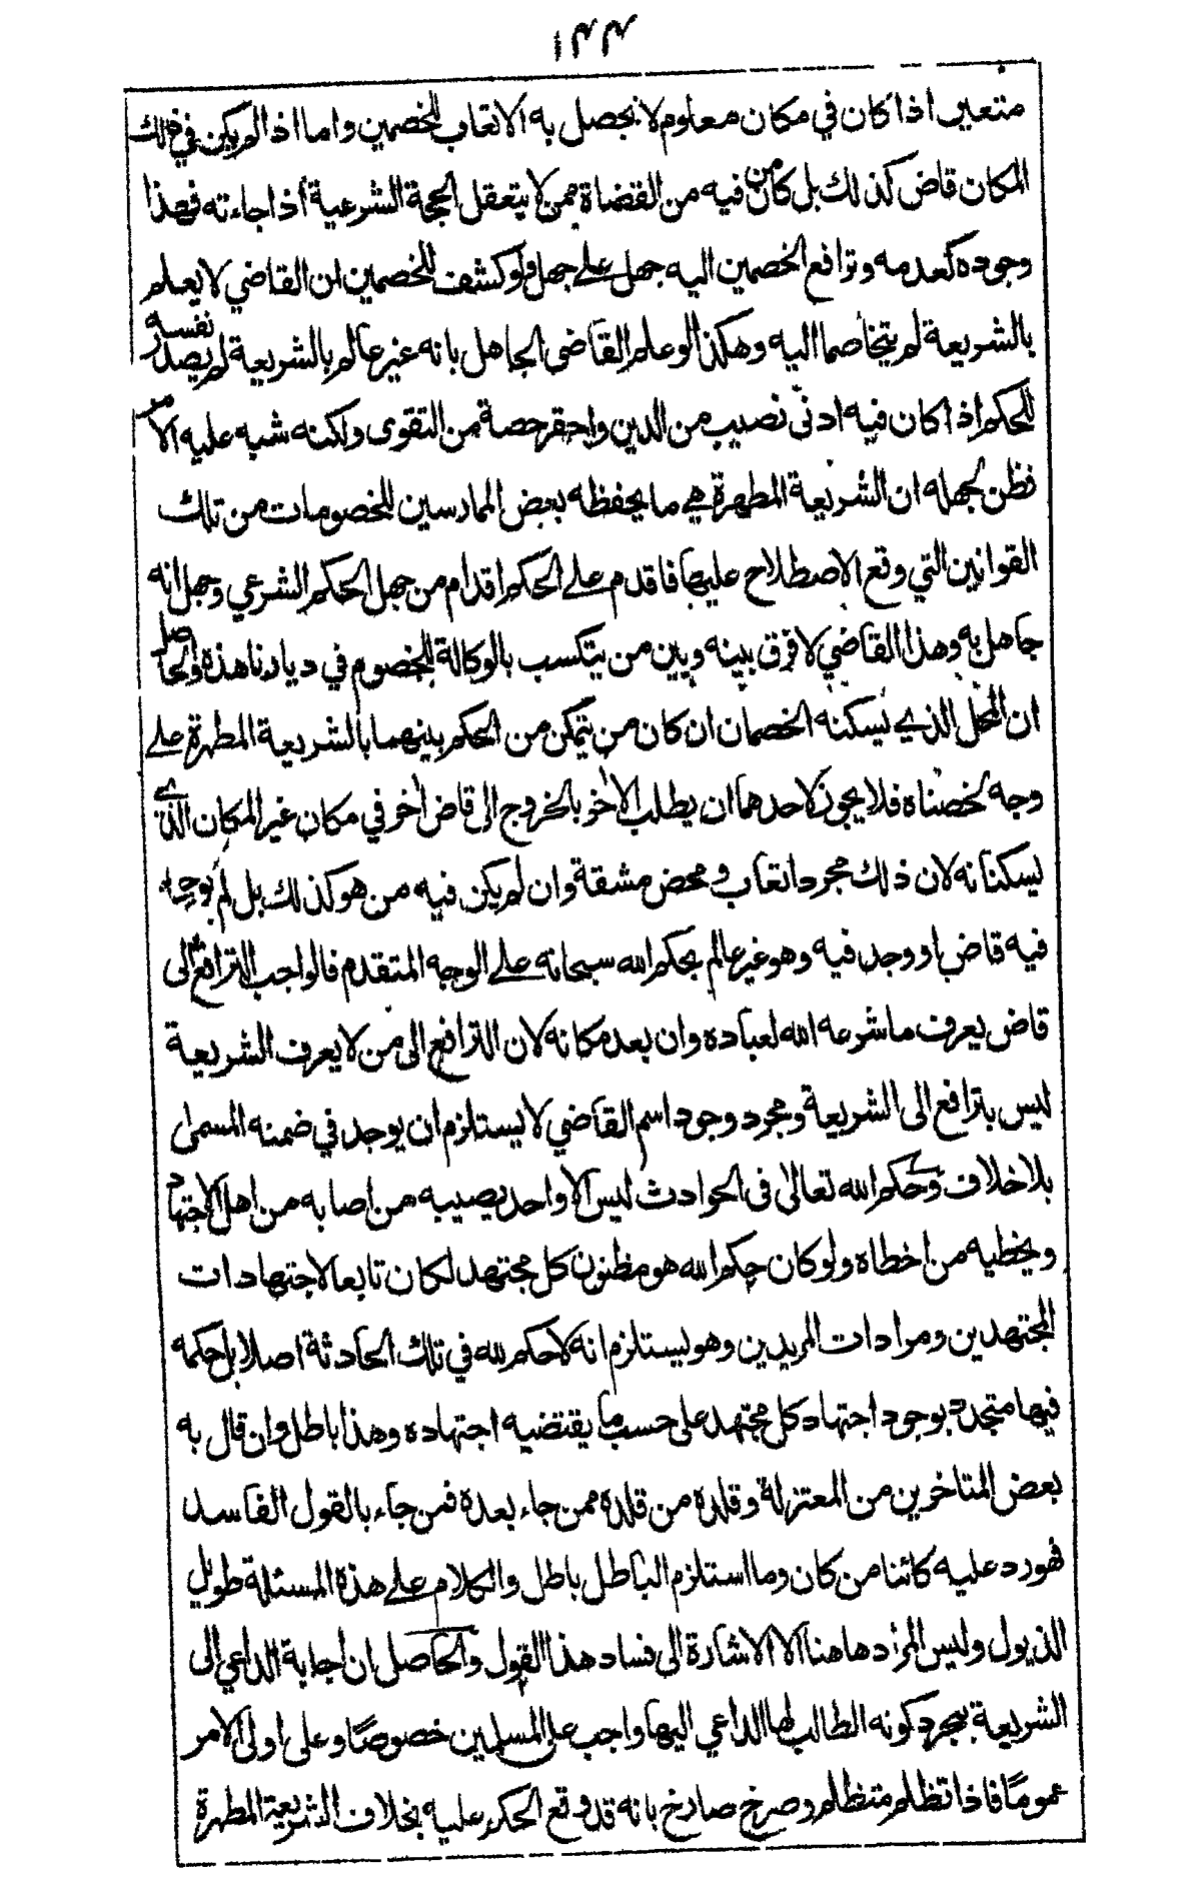 ١٣٣
متعين اذا كان في مكان معلوم لا يحصل به الاتعاب للخصمين واما اذا لم يكن في ذلك
المكان قاض كذلك بل كان من فيه من القضاة ممن لا يتعقل الحجة الشرعية اذا جاءته فهذا
وجوده كعدمه وترافع الخصمين اليه جهل على جهل ولو كشف للخصمين ان القاضي لا يعلم
بالشريعة لم يتخاصما اليه وهكذا لو علم القاضي الجاهل بانه غير عالم بالشريعة لم يصدر نفسه
للحكم اذا كان فيه ادنى نصيب من الدين واحقر حصة من التقوى ولكنه شبه عليه الامر
فظن لجهله ان الشريعة المطهرة هي ما يحفظه بعض الممارسين للخصومات من تلك
القوانين التي وقع الاصطلاح عليها فاقدم على الحكم اقدام من جهل الحكم الشرعي وجهل انه
جاهل به وهذا القاضي لا فرق بينه وبين من يتكسب بالوكالة للخصوم في ديارنا هذه والحاصل
ان المحل الذي يسكنه الخصمان ان كان من يتمكن من الحكم بينهما بالشريعة المطهرة على
وجه لخصناه فلا يجوز لاحدهما ان يطلب الاخر بالخروج الى قاض اخر في مكان غير المكان الذي
يسكنانه لان ذلك مجرد اتعاب ومحض مشقة وان لم يكن فيه من هو كذلك بل لم يوجد
فيه قاض او وجد فيه وهو غير عالم بحكم الله سبحانه على الوجه المتقدم فالواجب الترافع الى
قاض يعرف ما شرعه الله لعباده وان بعد مكانه لان الترافع الى من لا يعرف الشريعة
ليس بترافع الى الشريعة ومجرد وجود اسم القاضي لا يستلزم ان يوجد في ضمنه المسمى
بلا خلاف وحكم الله تعالى في الحوادث ليس الا واحد يصيبه من اصابه من اهل الاجتهاد
ويخطيه من اخطاه ولو كان حكم الله هو مظنون كل مجتهد لكان تابعا لاجتهادات
المجتهدين ومرادات المريدين وهو يستلزم انه لا حكم لله في تلك الحادثة اصلا بل حكمه
فيها متجدد بوجود اجتهاد كل مجتهد على حسب ما يقتضيه اجتهاده وهذا باطل وان قال به
بعض المتاخرين من المعتزلة وقلده من قلده ممن جاء بعده فمن جاء بالقول الفاسد
فهو رد عليه كائنا من كان وما استلزم الباطل باطل والكلام على هذه المسئلة طويل
الذيول وليس المراد هاهنا الا الاشارة الى فساد هذا القول والحاصل ان اجابة الداعي الى
الشريعة بمجرد كونه الطالب لها الداعي اليها واجب على المسلمين خصوصًا وعلى اولى الامر
عمومًا فاذا تظلم متظلم وصرخ صارخ بانه قد وقع الحكم عليه بخلاف الشريعة المطهرة